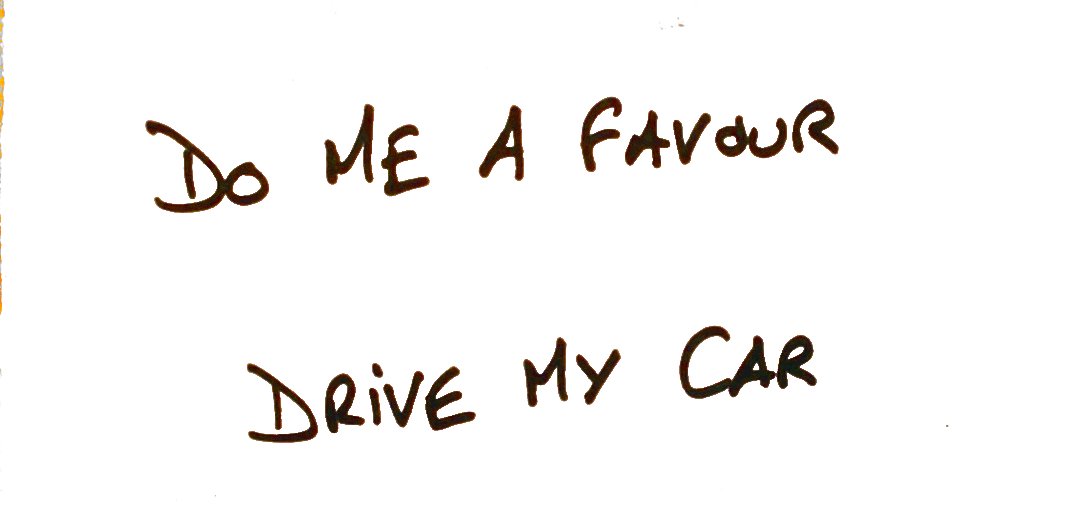 DO ME A FAVOUR
DRiVE MY CAR